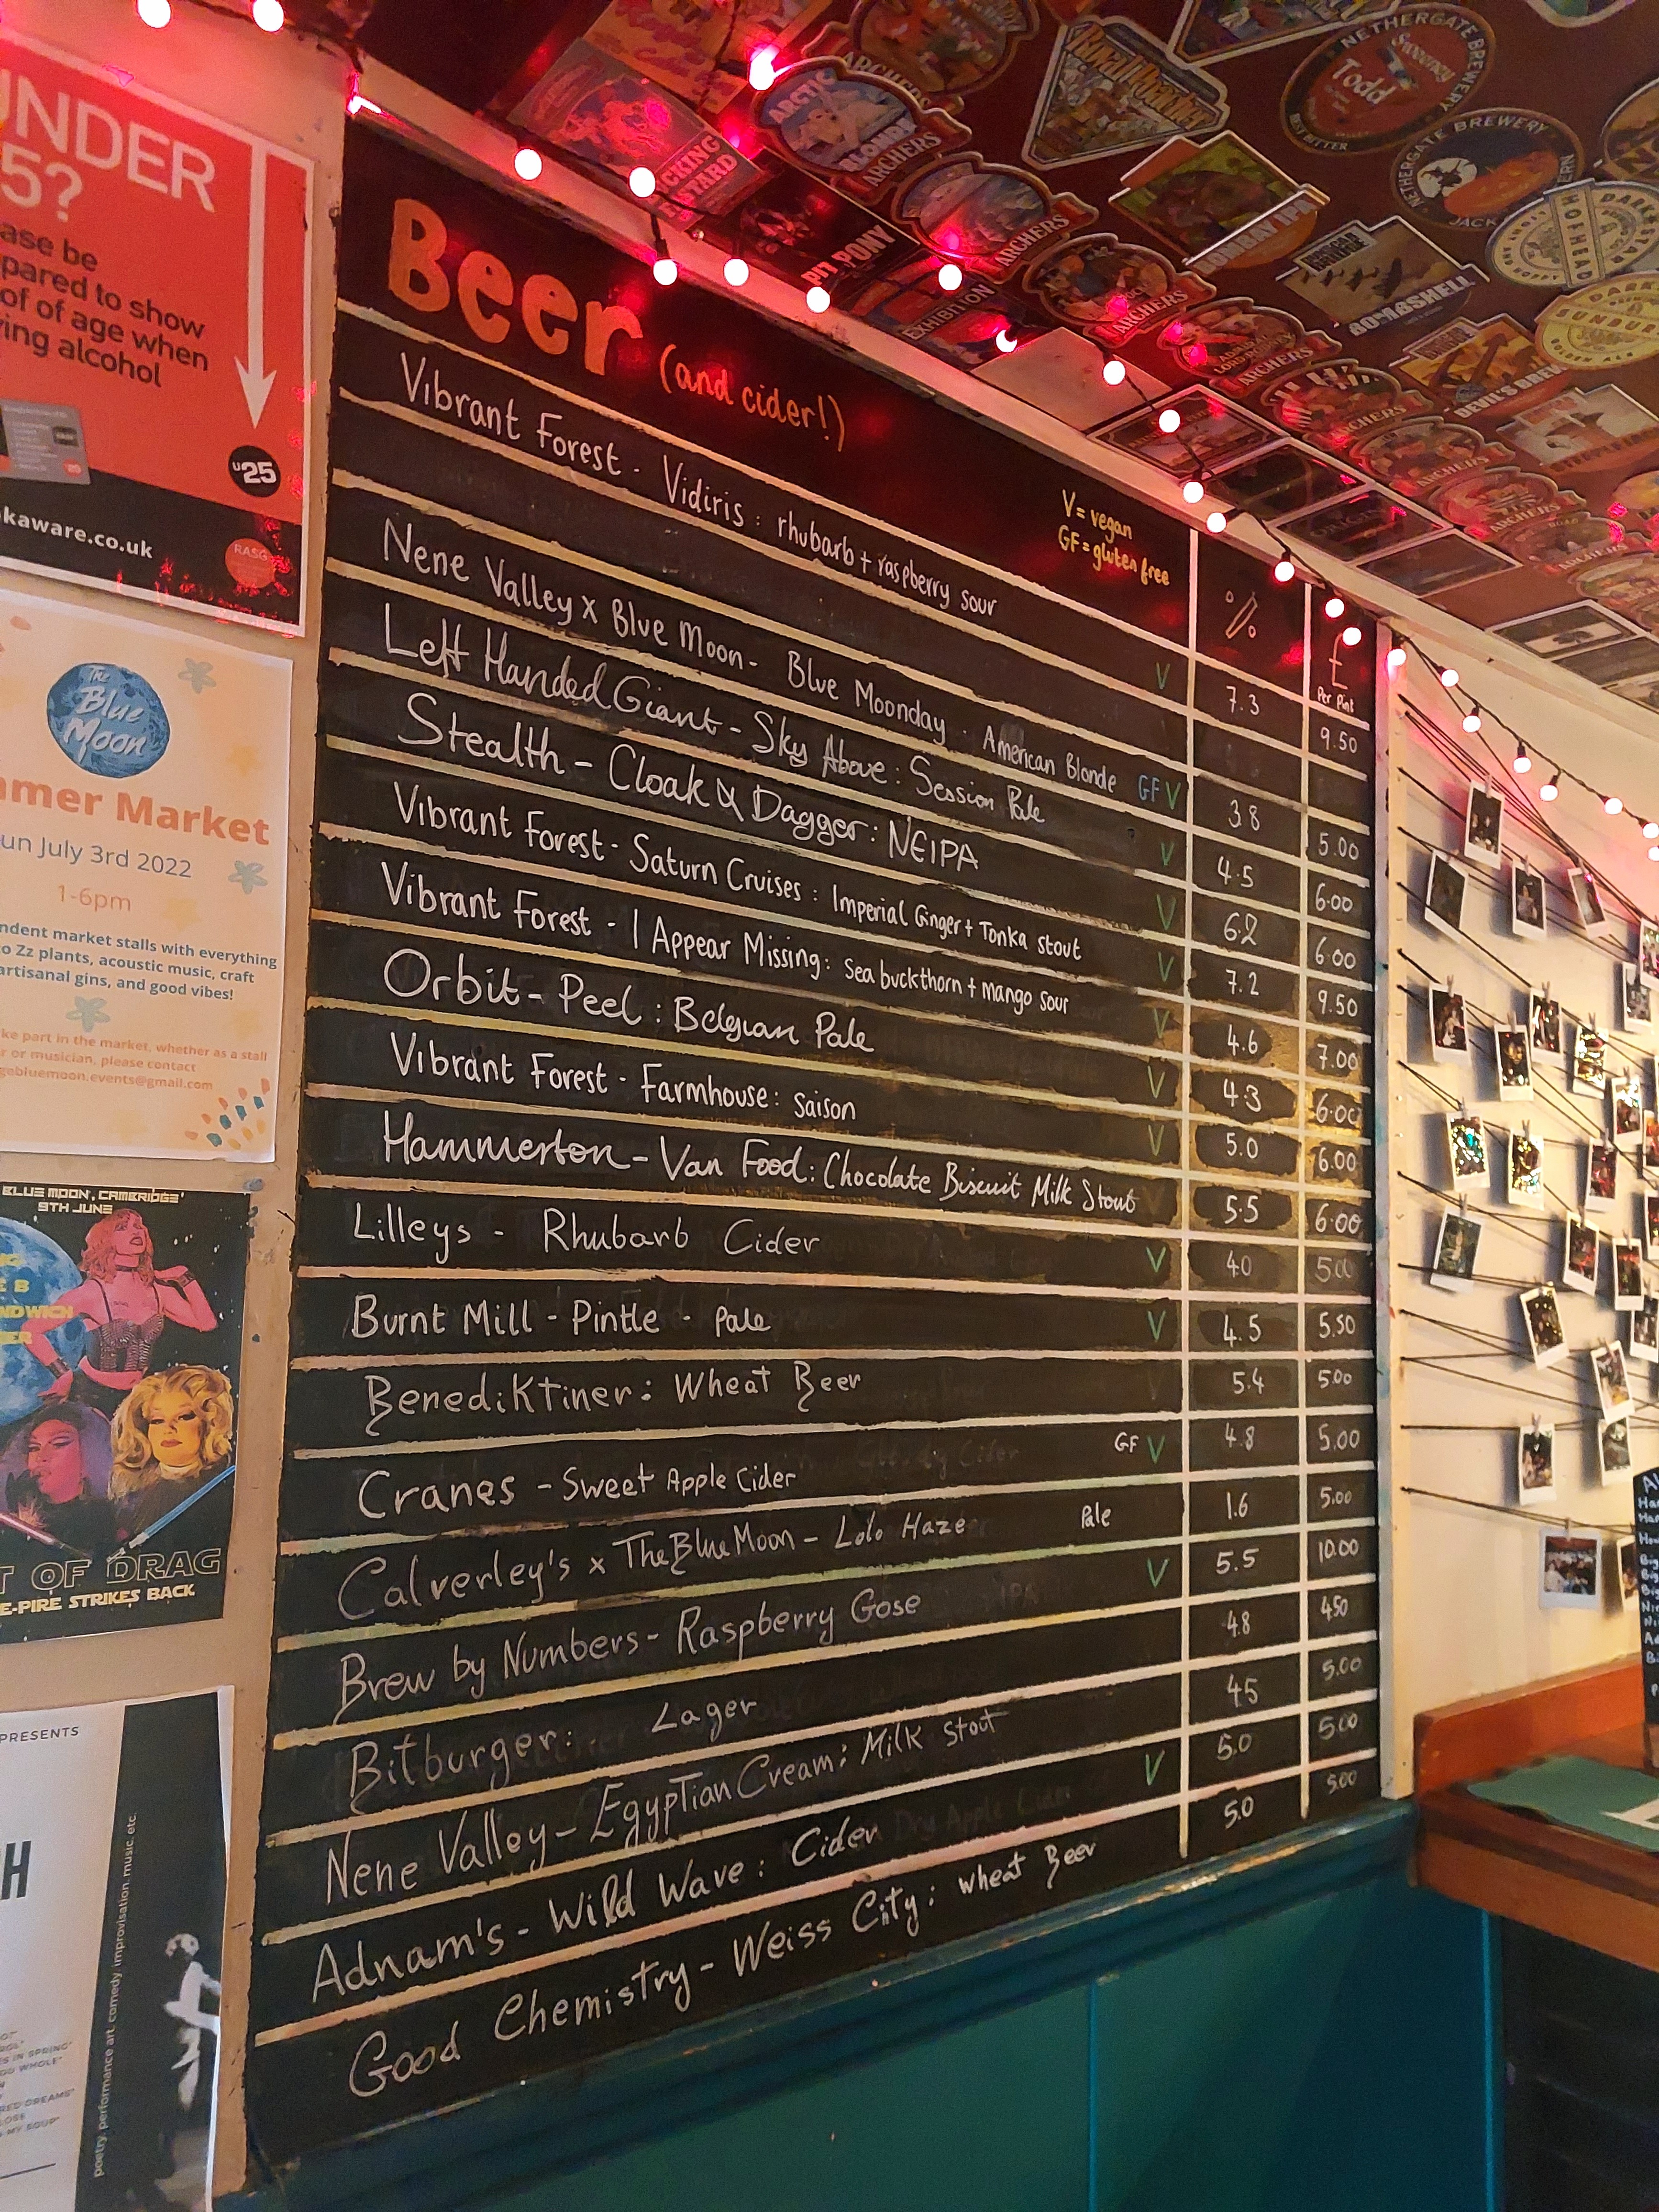 UNDER
5?
ase be
pared to show
of of age when
ing alcohol
U25
kaware.co.uk
RASG
The Blue Moon
mer Market
un July 3rd 2022
1-6pm
ndent market stalls with everything
o Zz plants, acoustic music, craft
artisanal gins, and good vibes!
ke part in the market, whether as a stall
r or musician, please contact
gebluemoon.events@gmail.com
BLUE MOON, CAMBRIDGE'
9TH JUNE
T OF DRAG
E-PIRE STRIKES BACK
PRESENTS
H
poetry, performance art, comedy, improvisation, music, etc.
Beer (and cider!)
V = vegan
GF = gluten free
% £ Per Pint
Vibrant Forest - Vidiris : rhubarb + raspberry sour V 7.3 9.50
Nene Valley x Blue Moon - Blue Moonday - American Blonde GF V 3.8 5.00
Left Handed Giant - Sky Above : Session Pale V 4.5 6.00
Stealth - Cloak & Dagger : NEIPA V 6.2 6.00
Vibrant Forest - Saturn Cruises : Imperial Ginger + Tonka stout V 7.2 9.50
Vibrant Forest - I Appear Missing : Sea buckthorn + mango sour V 4.6 7.00
Orbit - Peel : Belgian Pale V 4.3 6.00
Vibrant Forest - Farmhouse : saison V 5.0 6.00
Hammerton - Van Food : Chocolate Biscuit Milk Stout 5.5 6.00
Lilleys - Rhubarb Cider V 4.0 5.00
Burnt Mill - Pintle - Pale V 4.5 5.50
Benediktiner : Wheat Beer 5.4 5.00
Cranes - Sweet Apple Cider GF V 4.8 5.00
Calverley's x The Blue Moon - Lolo Haze Pale 1.6 5.00
Brew by Numbers - Raspberry Gose V 5.5 10.00
Bitburger : Lager 4.8 4.50
Nene Valley - Egyptian Cream : Milk Stout 4.5 5.00
Adnam's - Wild Wave : Cider V 5.0 5.00
Good Chemistry - Weiss City : Wheat Beer 5.0 5.00
ARCTIC
ARCHERS
PIT PONY
EXHIBITION
ARCHERS
ARCHERS
ARCHERS
BOMBAY IPA
BOMBSHELL
DEVIL'S BREW
NETHERGATE BREWERY
Sweeney Todd
BEST BITTER
NETHERGATE BREWERY
DARK STAR
HOPHEAD